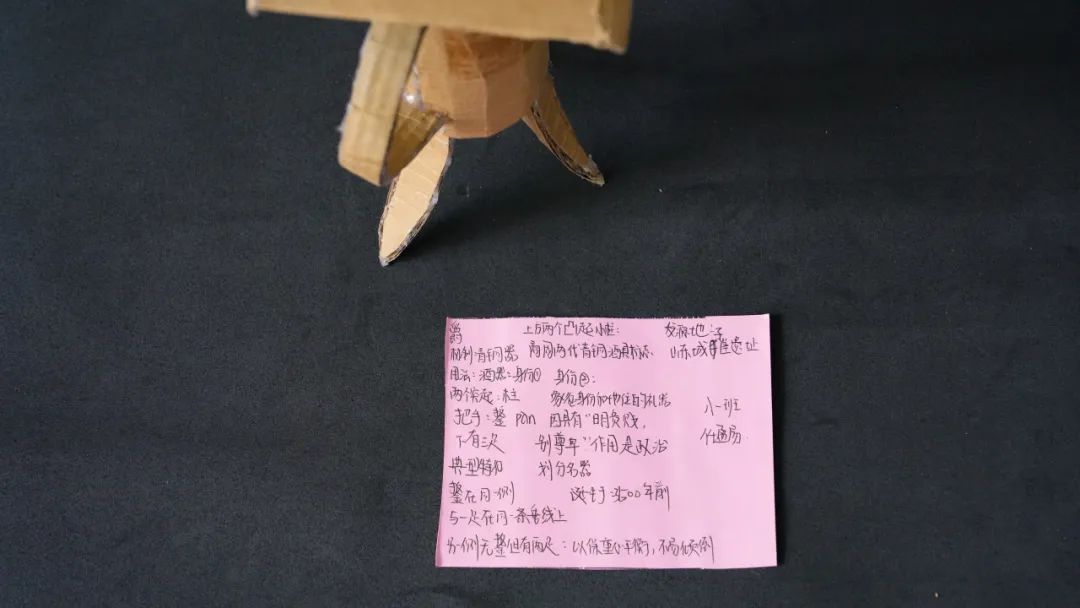 爵 上方两个凸起小柱： 发源地：
青铜器 商周两代青铜酒 山东城 遗址
用法：酒器：身份① 身份②：
两个突起：柱 象征身份和地位的礼器 八一班
把手：鋬 pàn 因具有“明贵贱，
下有三足 别尊卑”作用是政治
典型特征 划分名器
鋬在同一侧 诞生于3500年前
与一足在同一条垂线上
另一侧无鋬但有两足：以保重心平衡，不易倾倒